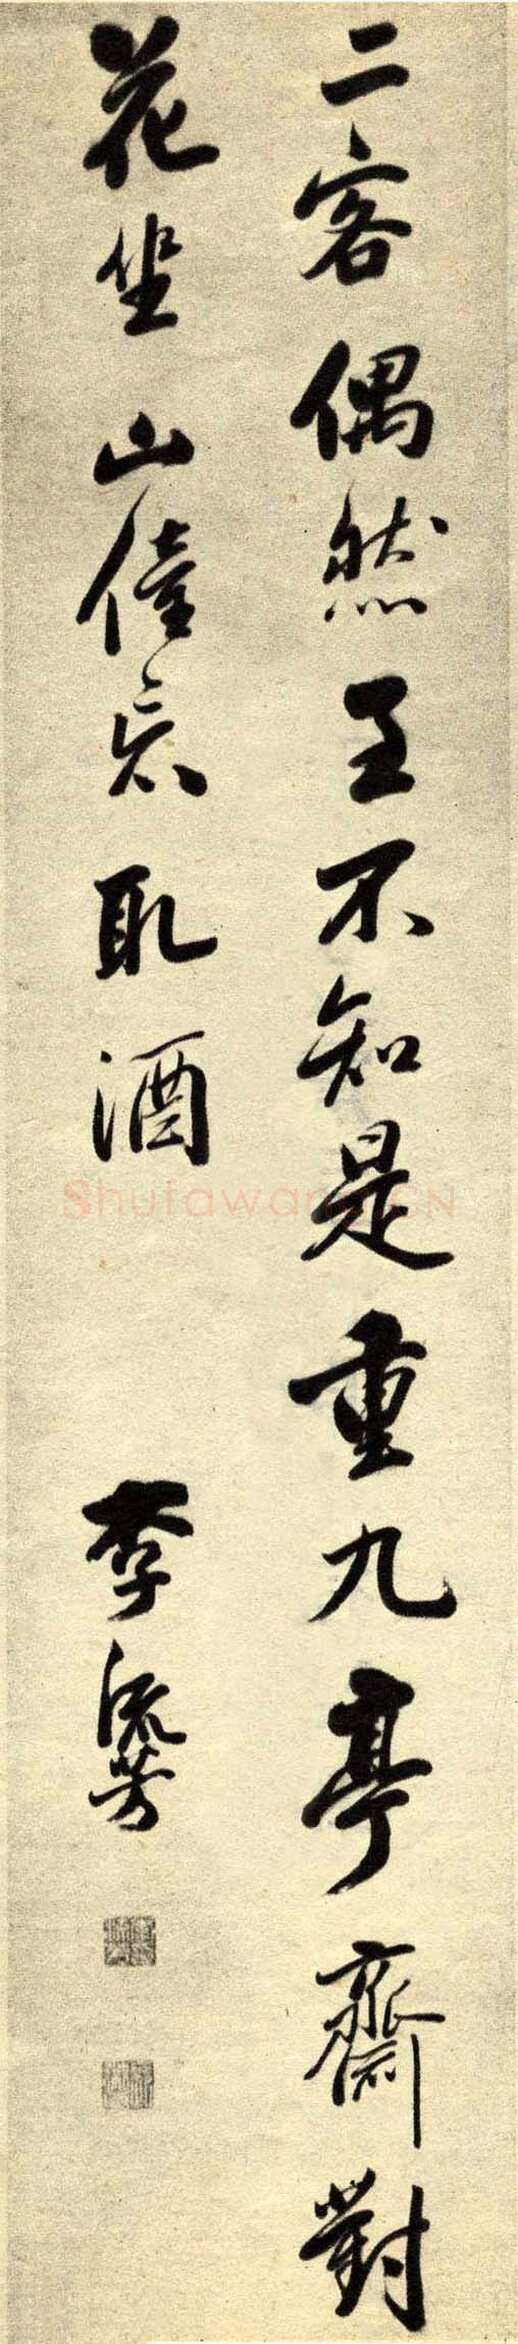 二客偶然至不知是重九亭齋對
花坐山僮忘取酒
李流芳
Shufawang.CN